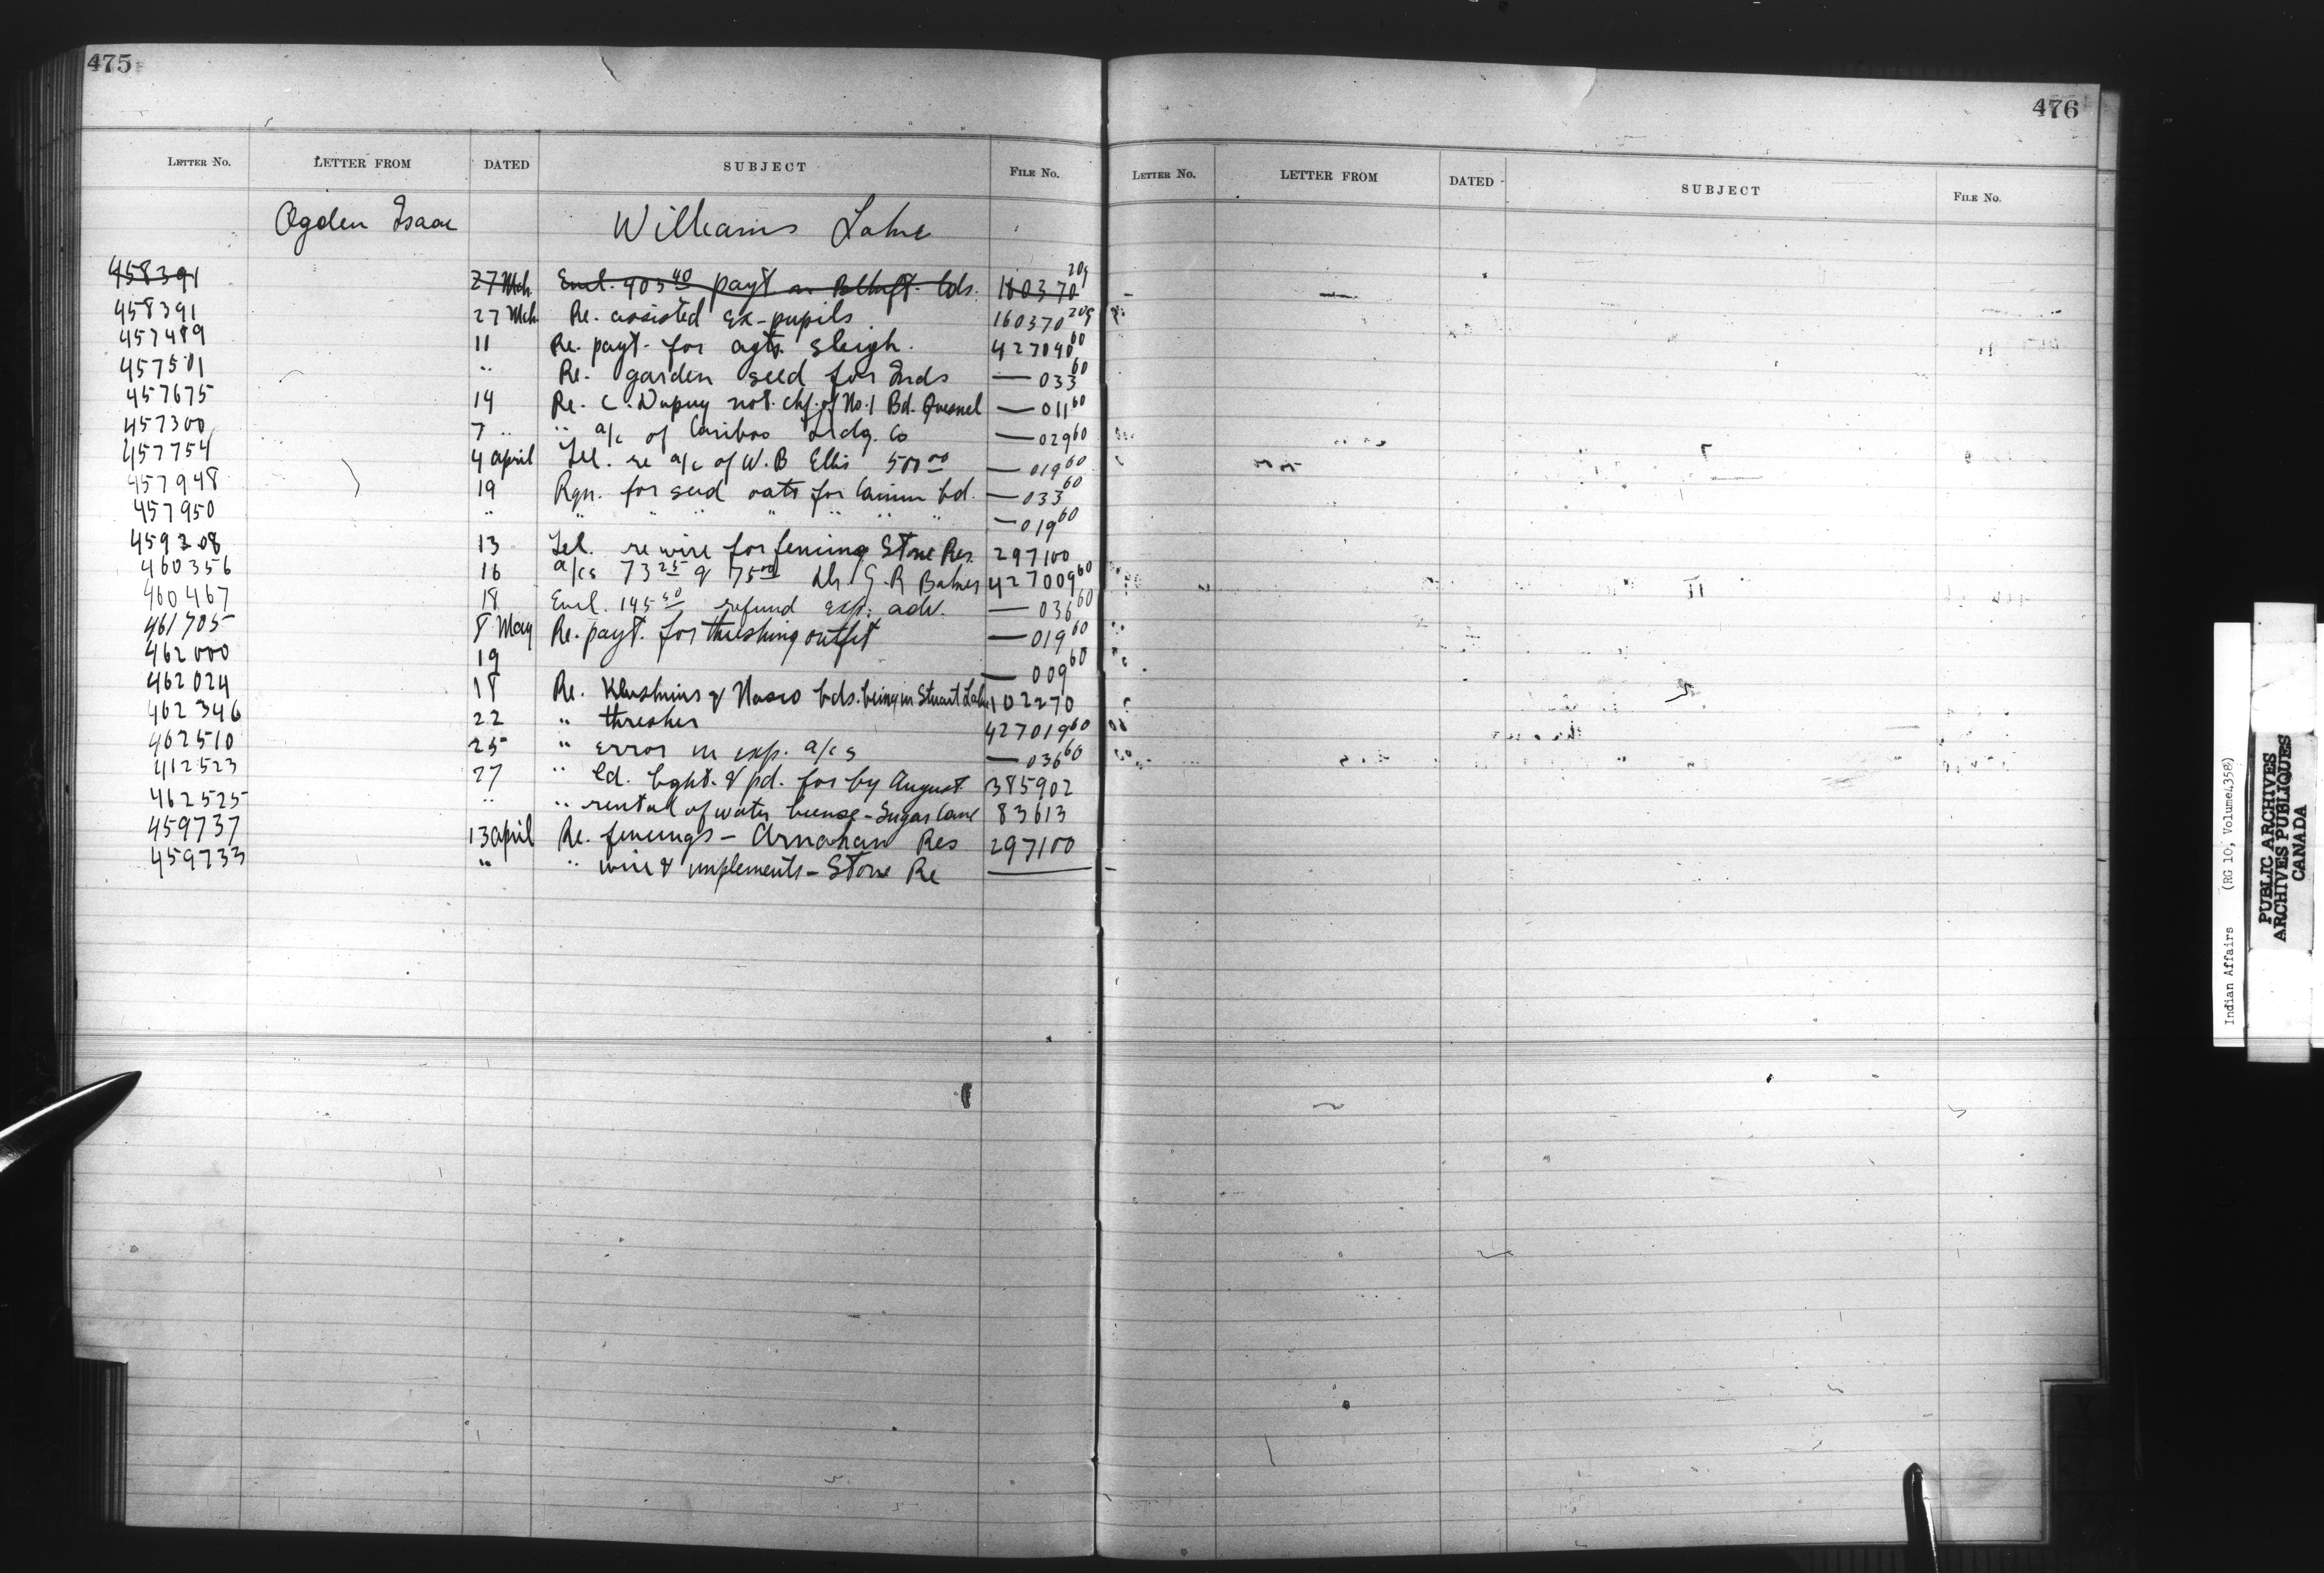 475
LETTER NO. LETTER FROM DATED SUBJECT FILE NO.
Ogden Isaac Williams Lake
458391 27 Mch. Encl. 403 40 payt lds. 160370 209
458391 27 Mch. Re. assisted ex-pupils 160370 209
457489 11 Re. payt. for agts. sleigh. 427040 60
457501 " Re. garden seed for Inds — 033 60
457675 14 Re. C. Dupuy not. chf. of No. 1 Bd. Quesnel — 011 60
457300 7 " " a/c of Cariboo Trdg. Co — 029 60
457754 4 april Tel. re a/c of W. B Ellis 500 00 — 019 60
457948 19 Rqn. for seed oats for bd. — 033 60
457950 " " " " " " " " — 019 60
459308 13 Tel. re wire for fencing Stone Res. 297100
460356 16 a/cs 73 25 & 75 00 Dr. G. R 427009 60
460467 18 Encl. 145 50 refund exp. adv. — 036 60
461705 8 May Re. payt. for threshing outfit — 019 60
462000 19 — 009 60
462024 18 Re. & bds. being in Stuart Lake 102270
462346 22 " thresher 427019 60
462510 25 " error in exp. a/cs — 036 60
412523 27 " ld. bght. & pd. for by August 385902
462525 " " rental of water license - Sugar Cane 83613
459737 13 april Re. fencings - Res 297100
459733 " " wire & implements - Stone Re ——
476
LETTER NO. LETTER FROM DATED SUBJECT FILE NO.
Indian Affairs (RG 10, Volume 4358)
PUBLIC ARCHIVES
ARCHIVES PUBLIQUES
CANADA